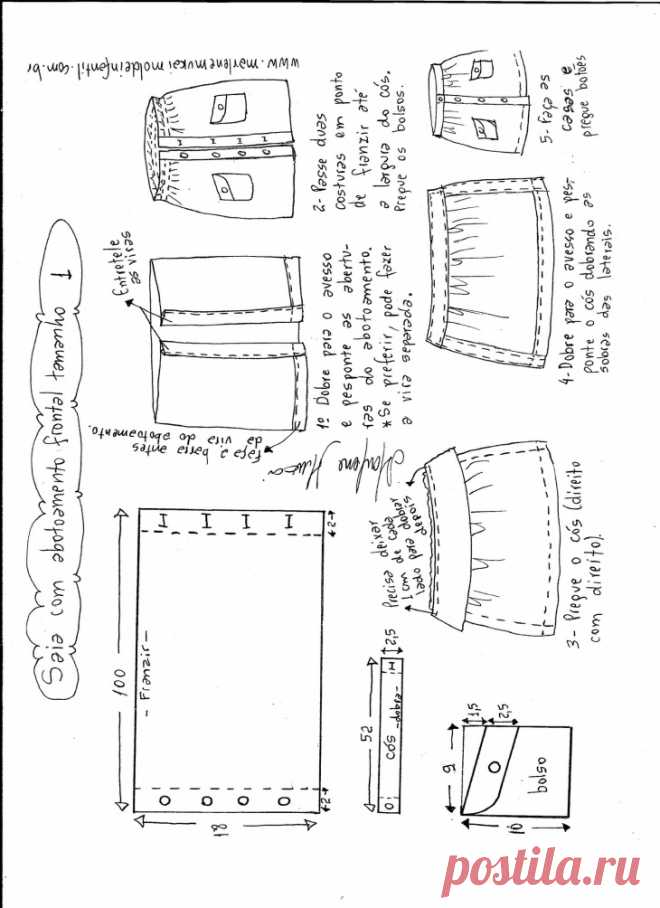 Saia com abotoamento frontal tamanho 1
100
- Franzir -
18
2
2
Faça a barra antes
da vira do abotoamento.
Entretele
as viras
1º Dobre para o avesso
e pesponte as abertu-
ras do abotoamento.
*Se preferir, pode fazer
a vira separada.
2- Passe duas
costuras em ponto
de franzir até
a largura do cós.
Pregue os bolsos.
www.marlenemukaimoldeinfantil.com.br
52
cós -dobra-
2,5
9
1,5
2,5
bolso
10
Precisa deixar
1cm de cada
lado para dobrar
depois
3- Pregue o cós (direito
com direito).
4- Dobre para o avesso e pes-
ponte o cós dobrando as
sobras das laterais.
5- Faça as
casas e
pregue botões
postila.ru